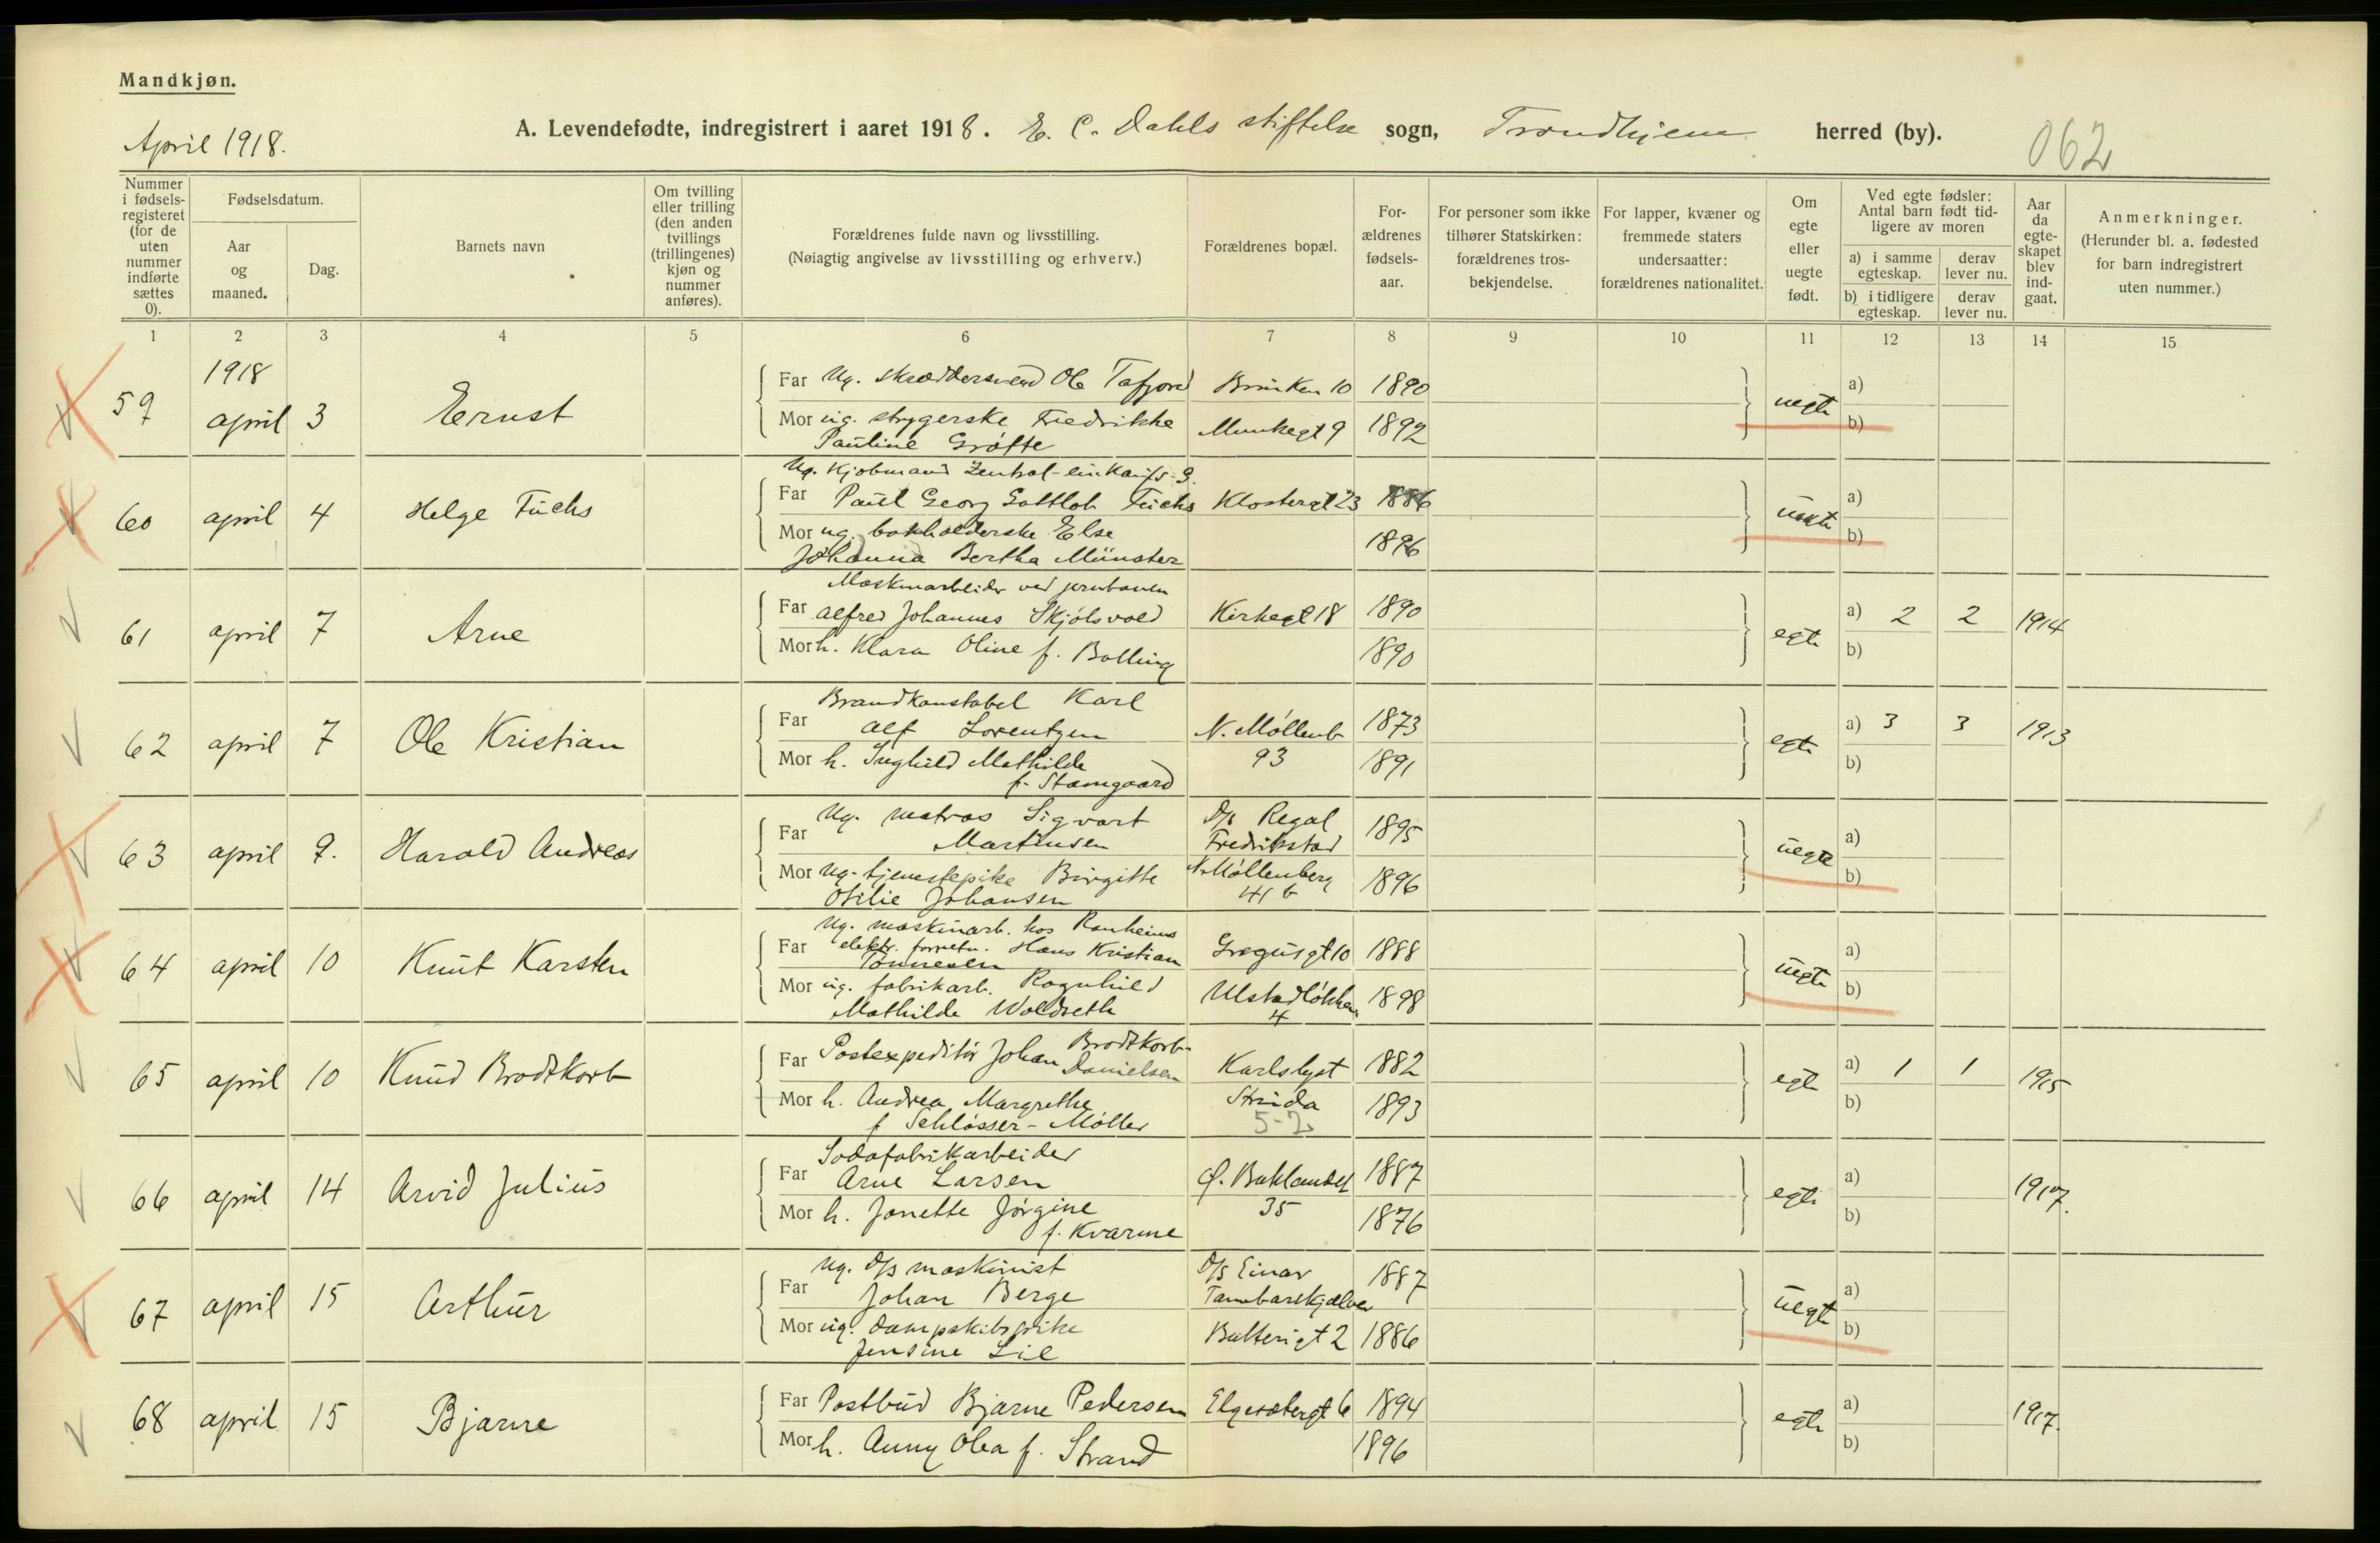 Mandkjøn.
April 1918.
A. Levendefødte, indregistrert i aaret 1918. E. C. Dahls stiftelse sogn, Trondhjem herred (by).
062
Nummer i fødsels-registeret (for de uten nummer indførte sættes 0).
Fødselsdatum.
Aar og maaned.
Dag.
Barnets navn
Om tvilling eller trilling (den anden tvillings (trillingenes) kjøn og nummer anføres).
Forældrenes fulde navn og livsstilling.
(Nøiagtig angivelse av livsstilling og erhverv.)
Forældrenes bopæl.
For-ældrenes fødsels-aar.
For personer som ikke tilhører Statskirken: forældrenes tros-bekjendelse.
For lapper, kvæner og fremmede staters undersaatter: forældrenes nationalitet.
Om egte eller uegte født.
Ved egte fødsler: Antal barn født tid-ligere av moren
a) i samme egteskap.
derav lever nu.
b) i tidligere egteskap.
derav lever nu.
Aar da egte-skapet blev ind-gaat.
Anmerkninger.
(Herunder bl. a. fødested for barn indregistrert uten nummer.)
1 2 3 4 5 6 7 8 9 10 11 12 13 14 15
1918
59 april 3 Ernst
Far Ug. skræddersvend Ole Tafjord Brinken 10 1890
uegte a)
Mor ug. strygerske Fredrikke Munkegt 9 1892
b)
Pauline Grøfte
Ug. Kjøbmand Zentral-einkaufs-G.
60 april 4 Helge Fuchs
Far Paul Georg Gottlob Fuchs Klostergt 23 1886
uekte a)
Mor ug. bokholderske Else 1896
b)
Johanna Bertha Münster
Maskinarbeider ved jernbanen
61 april 7 Arne
Far Alfred Johannes Skjølsvold Kirkegt 18 1890
egte a) 2 2 1914
Mor h. Klara Oline f. Bolling 1890
b)
Brandkonstabel Karl
62 april 7 Ole Kristian
Far Alf Lorentzen N. Møllenb 1873
egte a) 3 3 1913
Mor h. Inghild Mathilde 93 1891
b)
f. Stamgaard
Ug. matros Sigvart D/s Regal
63 april 9. Harald Andreas
Far Martinsen Fredrikstad 1895
uegte a)
Mor ug. tjenestepike Birgitte N. Møllenberg 1896
b)
Otilie Johansen 41 b
Ug. maskinarb. hos Ranheims
64 april 10 Knut Karsten
Far elektr. forretn. Hans Kristian Gregusgt 10 1888
uegte a)
Tønnesen
Mor ug. fabrikarb. Ragnhild Ulstadløkken 1898
b)
Mathilde Woldseth 4
65 april 10 Knud Brodtkorb
Far Postexpeditør Johan Brodtkorb- Danielsen Karlslyst 1882
egte a) 1 1 1915
Mor h. Andrea Margrethe Strinda 1893
b)
f Schlösser-Møller 5-2
Sodafabrikarbeider
66 april 14 Arvid Julius
Far Arne Larsen Ø. Baklandet 1887
egte a) 1917.
Mor h. Janette Jørgine 35 1876
b)
f. Kvarme
Ug. D/s maskinist D/s Einar
67 april 15 Arthur
Far Johan Berge Tambarskjælver 1887
uegte a)
Mor ug. dampskibspike Butterigt 2 1886
b)
Jensine Lil
68 april 15 Bjarne
Far Postbud Bjarne Pedersen Elgesetergt 6 1894
egte a) 1917.
Mor h. Anny Olea f. Strand 1896
b)